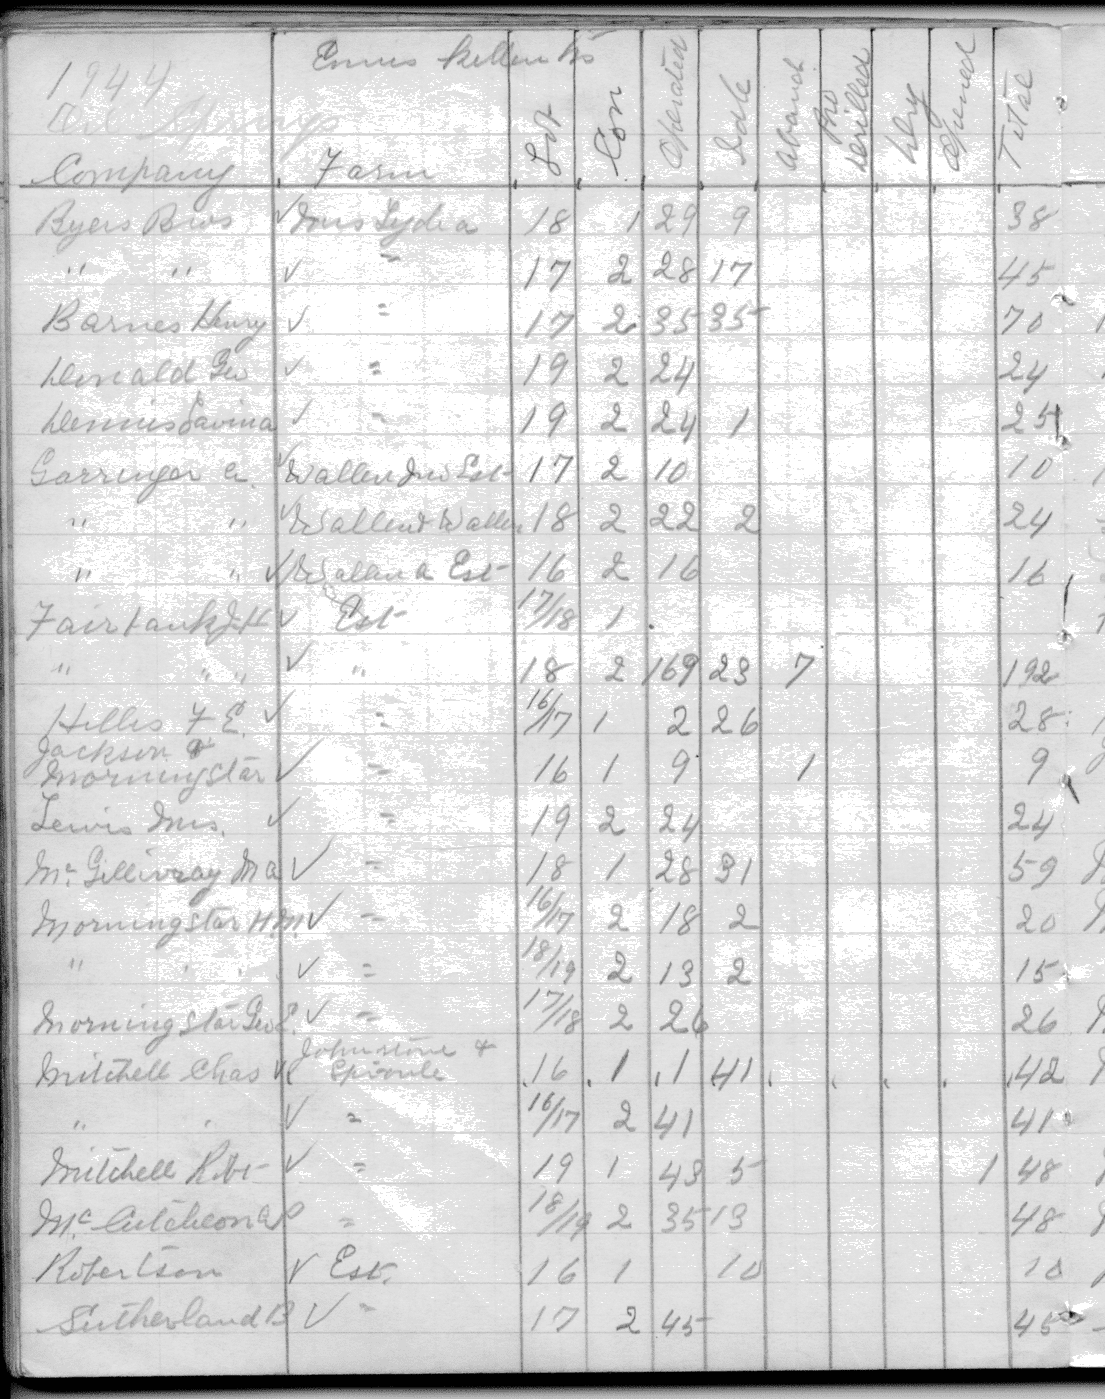 1944 Ennis Killen
Oil Springs
Company Farm Lot Con Operated Idle Aband. Pro Drilled Dry Opened Total
Byers Bros ✓ Lydia 18 1 29 9 38
" " ✓ " 17 2 28 17 45
Barnes Henry ✓ " 17 2 35 35 70
Donald Geo ✓ " 19 2 24 24
Dennis Lavina ✓ " 19 2 24 1 25
Garringer ✓ Est 17 2 10 10
" " ✓ 18 2 22 2 24
" " ✓ Est 16 2 16 16
Fairbank J H ✓ Est 17/18 1
" " " ✓ " 18 2 169 23 7 192
Hillis F E. ✓ " 16/17 1 2 26 28
Jackson &
Morningstar ✓ " 16 1 9 1 9
Lewis Mrs. ✓ " 19 2 24 24
Mc Gillivray Ma ✓ " 18 1 28 31 59
Morningstar H.M. ✓ " 16/17 2 18 2 20
" ✓ " 18/19 2 13 2 15
Morningstar Geo ✓ " 17/18 2 26 26
Johnstone &
Mitchell Chas ✓ Sproule 16 1 1 41 42
" ✓ " 16/17 2 41 41
Mitchell Robt ✓ " 19 1 43 5 1 48
Mc Cutcheon " 18/19 2 35 13 48
Robertson ✓ Est. 16 1 10 10
Sutherland B ✓ " 17 2 45 45